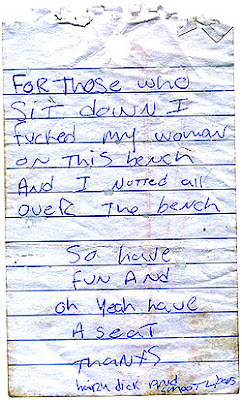 FOR THOSE WHO
SIT DOWN I
fucked my woman
ON THIS bench
AND I NUTTED all
OVER The bench
So have
FUN AND
oh Yeah have
A seat
THANKS
harzy dick AND smoot LipS